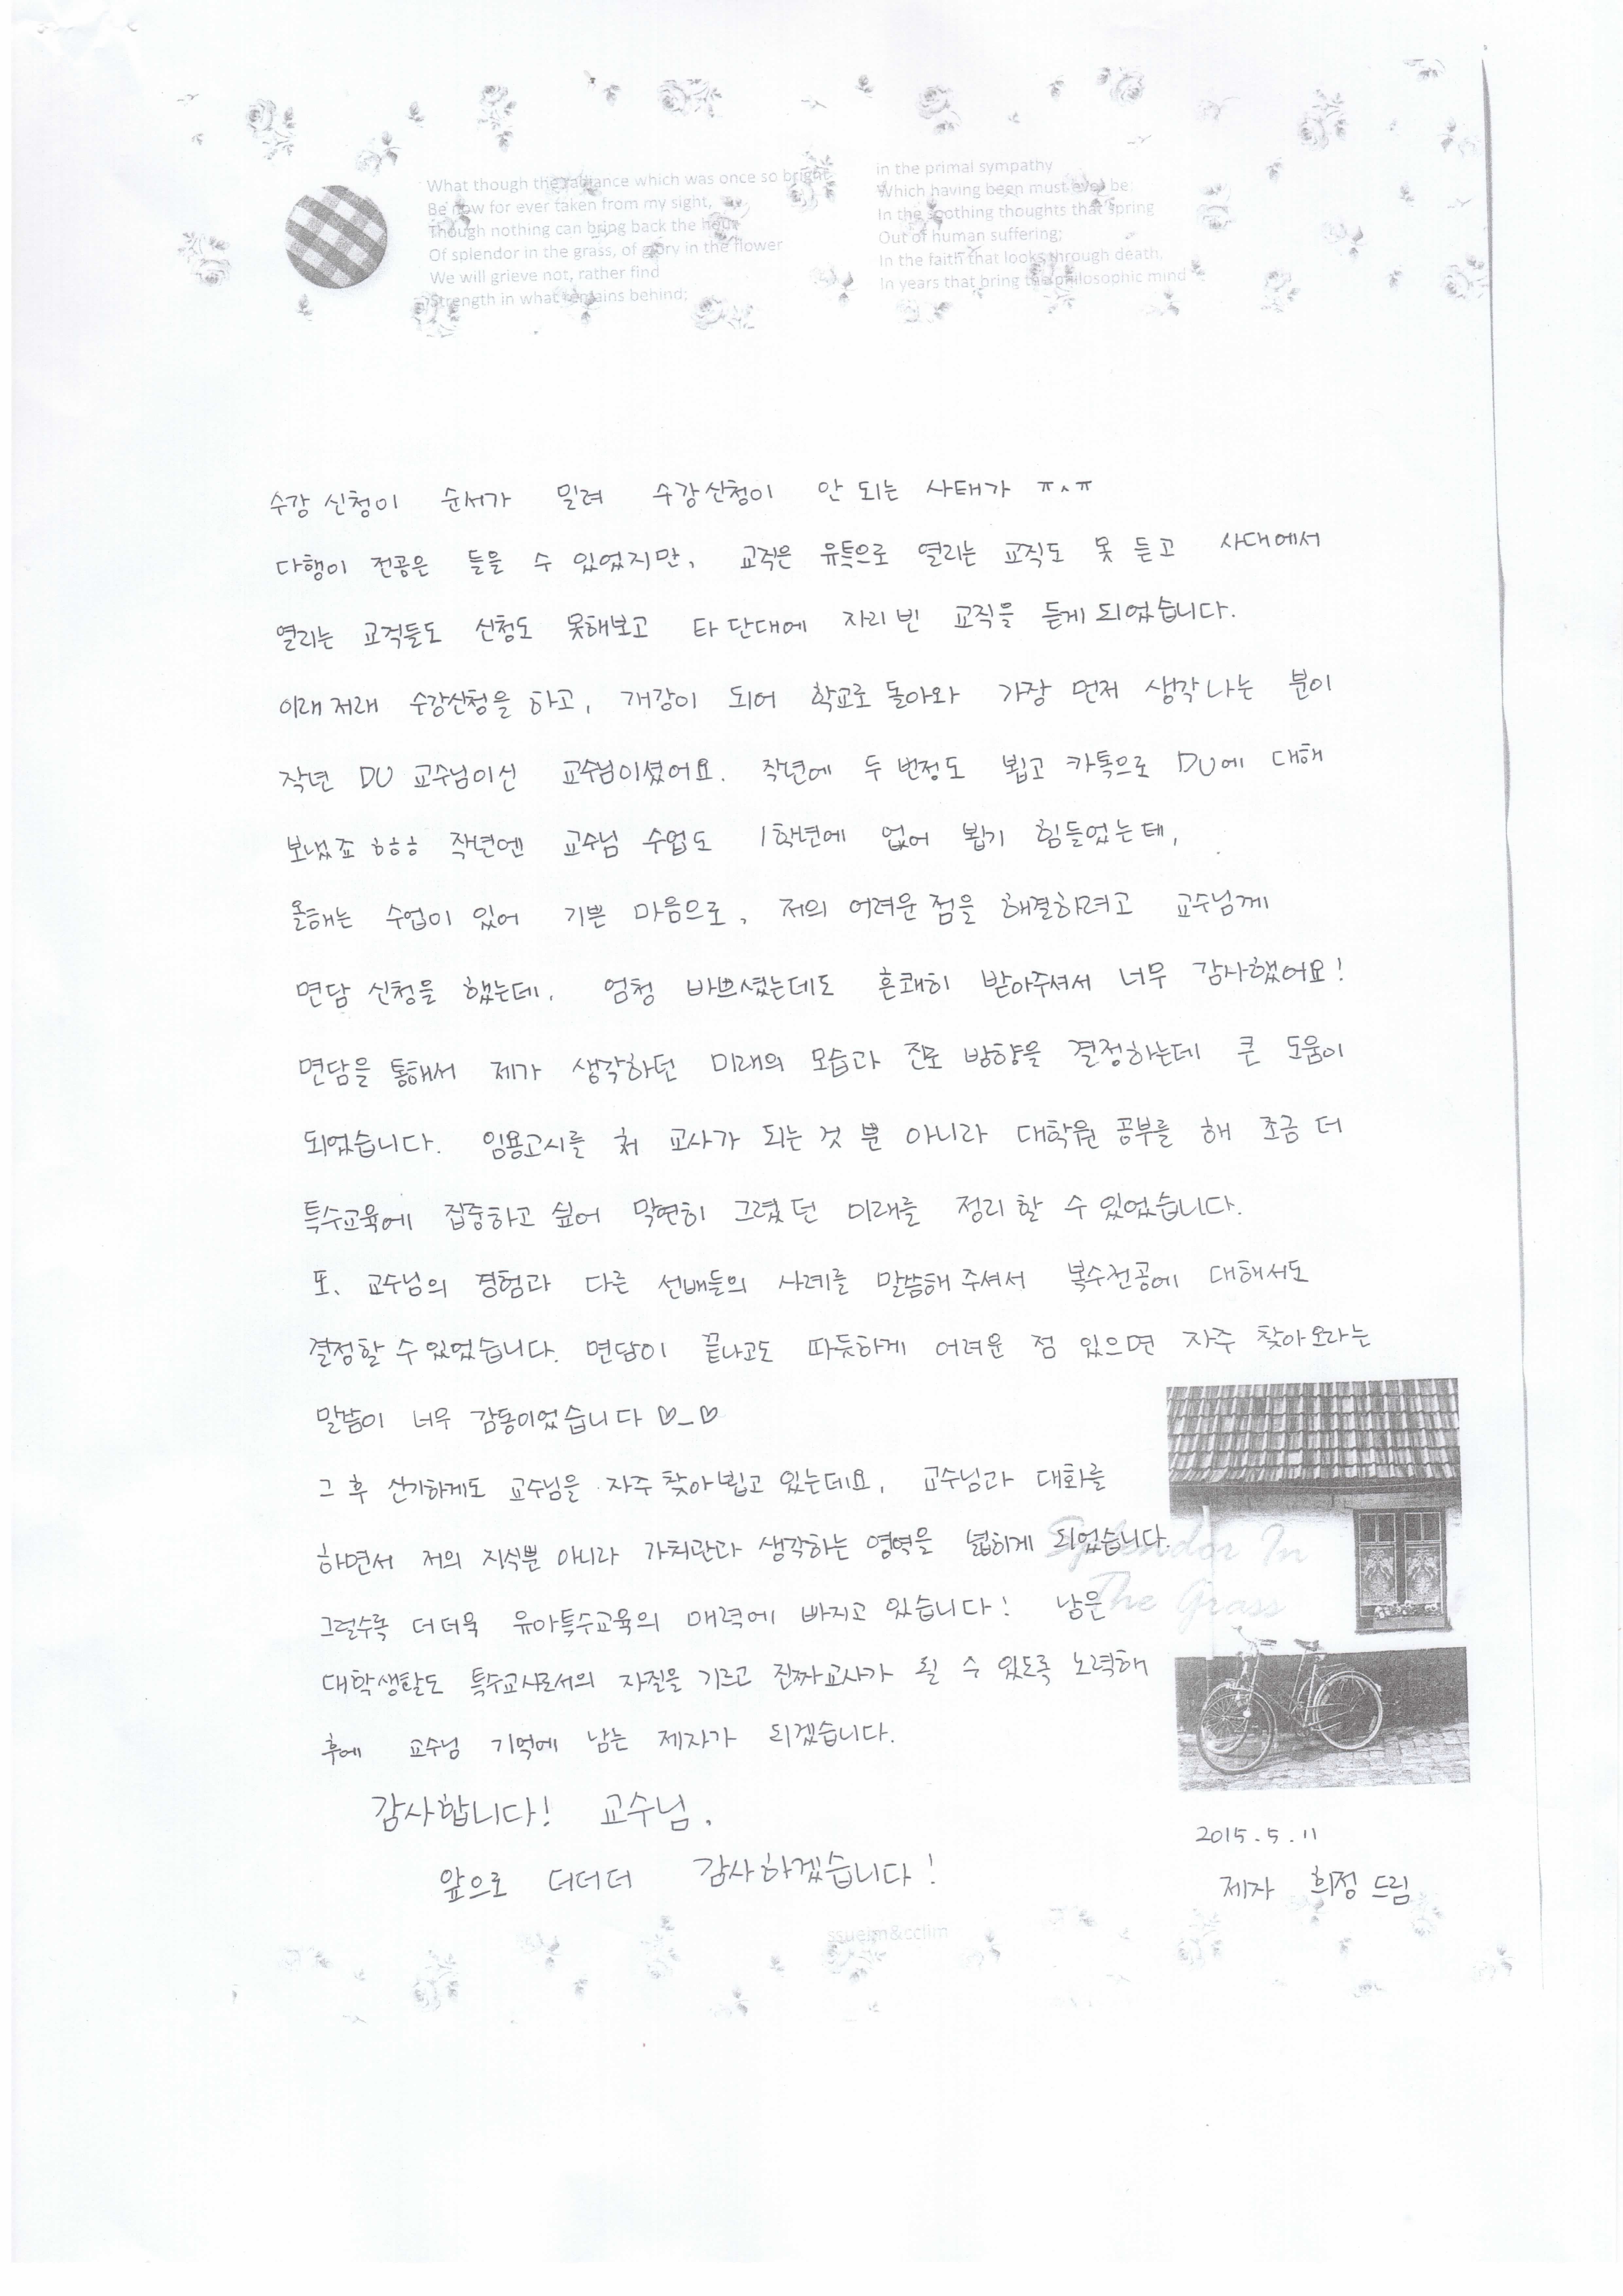 What though the radiance which was once so bright
Be now for ever taken from my sight,
Though nothing can bring back the hour
Of splendor in the grass, of glory in the flower
We will grieve not, rather find
Strength in what remains behind;
in the primal sympathy
Which having been must ever be;
In the soothing thoughts that spring
Out of human suffering;
In the faith that looks through death,
In years that bring the philosophic mind
수강 신청이 순서가 밀려 수강신청이 안 되는 사태가 ㅠㅅㅠ
다행이 전공은 들을 수 있었지만, 교직은 유특으로 열리는 교직도 못 듣고 사대에서
열리는 교직들도 신청도 못해보고 타 단대에 자리 빈 교직을 듣게 되었습니다.
이래저래 수강신청을 하고, 개강이 되어 학교로 돌아와 가장 먼저 생각나는 분이
작년 DU 교수님이신 교수님이셨어요. 작년에 두 번정도 뵙고 카톡으로 DU에 대해
보냈죠 ㅎㅎㅎ 작년엔 교수님 수업도 1학년에 없어 뵙기 힘들었는데,
올해는 수업이 있어 기쁜 마음으로, 저의 어려운 점을 해결하려고 교수님께
면담 신청을 했는데, 엄청 바쁘셨는데도 흔쾌히 받아주셔서 너무 감사했어요!
면담을 통해서 제가 생각하던 미래의 모습과 진로 방향을 결정하는데 큰 도움이
되었습니다. 임용고시를 쳐 교사가 되는 것 뿐 아니라 대학원 공부를 해 조금 더
특수교육에 집중하고 싶어 막연히 그렸던 미래를 정리 할 수 있었습니다.
또, 교수님의 경험과 다른 선배들의 사례를 말씀해 주셔서 복수전공에 대해서도
결정할 수 있었습니다. 면담이 끝나고도 따듯하게 어려운 점 있으면 자주 찾아오라는
말씀이 너무 감동이었습니다 ♡_♡
그 후 신기하게도 교수님을 자주 찾아뵙고 있는데요, 교수님과 대화를
하면서 저의 지식뿐 아니라 가치관과 생각하는 영역을 넓히게 되었습니다.
Splendor In
그럴수록 더더욱 유아특수교육의 매력에 빠지고 있습니다! 남은
The Grass
대학생활도 특수교사로서의 자질을 기르고 진짜교사가 될 수 있도록 노력해
후에 교수님 기억에 남는 제자가 되겠습니다.
감사합니다! 교수님.
앞으로 더더더 감사하겠습니다!
2015.5.11
제자 희정 드림
ssueim&cclim